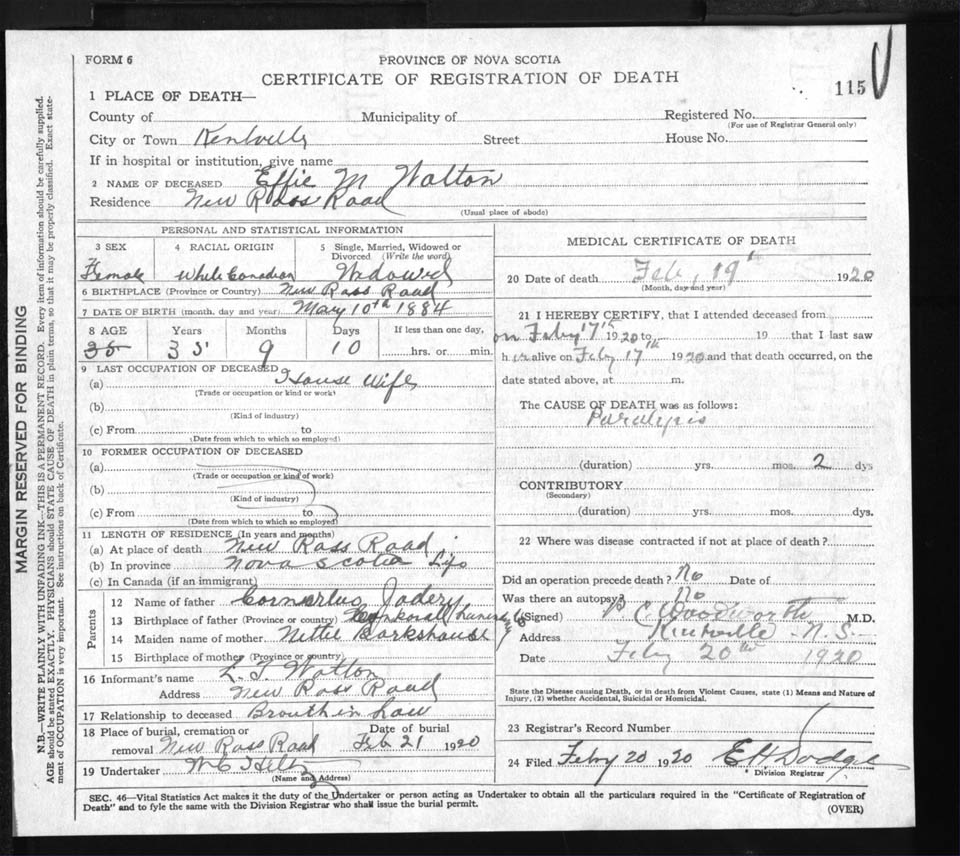 FORM 6
PROVINCE OF NOVA SCOTIA
CERTIFICATE OF REGISTRATION OF DEATH
115
1 PLACE OF DEATH—
County of Municipality of Registered No.
(For use of Registrar General only)
City or Town Kentville Street House No.
If in hospital or institution, give name
2 NAME OF DECEASED Effie M Walton
Residence New Ross Road
(Usual place of abode)
PERSONAL AND STATISTICAL INFORMATION
3 SEX 4 RACIAL ORIGIN 5 Single, Married, Widowed or Divorced (Write the word)
Female White Canadian Widowed
6 BIRTHPLACE (Province or Country) New Ross Road
7 DATE OF BIRTH (month, day and year) May 10th 1884
8 AGE Years Months Days If less than one day,
35 35 9 10 hrs. or min.
9 LAST OCCUPATION OF DECEASED
(a) House Wife
(Trade or occupation or kind of work)
(b)
(Kind of industry)
(c) From to
(Date from which to which so employed)
10 FORMER OCCUPATION OF DECEASED
(a)
(Trade or occupation or kind of work)
(b)
(Kind of industry)
(c) From to
(Date from which to which so employed)
11 LENGTH OF RESIDENCE (In years and months)
(a) At place of death New Ross Road
(b) In province Nova Scotia Life
(c) In Canada (if an immigrant)
Parents
12 Name of father Cornerlus Jodery
13 Birthplace of father (Province or country)
14 Maiden name of mother Nittie Barkshouse
15 Birthplace of mother (Province or country)
16 Informant's name L. T. Walton
Address New Ross Road
17 Relationship to deceased Brouth in Law
18 Place of burial, cremation or removal New Ross Road Date of burial Feb 21 1920
19 Undertaker
(Name and Address)
MEDICAL CERTIFICATE OF DEATH
20 Date of death Feb, 19th 1920
(Month, day and year)
21 I HEREBY CERTIFY, that I attended deceased from
on Feby 17th 1920 to 19 that I last saw
her alive on Feby 17th 1920 and that death occurred, on the
date stated above, at m.
The CAUSE OF DEATH was as follows:
Paralysis
(duration) yrs. mos. 2 dys
CONTRIBUTORY
(Secondary)
(duration) yrs. mos. dys.
22 Where was disease contracted if not at place of death?
Did an operation precede death? No Date of
Was there an autopsy? No
(Signed) Woodworth M.D.
Address Kentville - N.S.
Date Feby 20th 1920
State the Disease causing Death, or in death from Violent Causes, state (1) Means and Nature of
Injury, (2) whether Accidental, Suicidal or Homicidal.
23 Registrar's Record Number
24 Filed Feby 20 1920 E H Dodge
Division Registrar
SEC. 46—Vital Statistics Act makes it the duty of the Undertaker or person acting as Undertaker to obtain all the particulars required in the "Certificate of Registration of
Death" and to fyle the same with the Division Registrar who shall issue the burial permit.
(OVER)
MARGIN RESERVED FOR BINDING
N.B.—WRITE PLAINLY WITH UNFADING INK—THIS IS A PERMANENT RECORD. Every item of information should be carefully supplied.
AGE should be stated EXACTLY. PHYSICIANS should STATE CAUSE OF DEATH in plain terms, so that it may be properly classified. Exact state-
ment of OCCUPATION is very important. See instructions on back of Certificate.